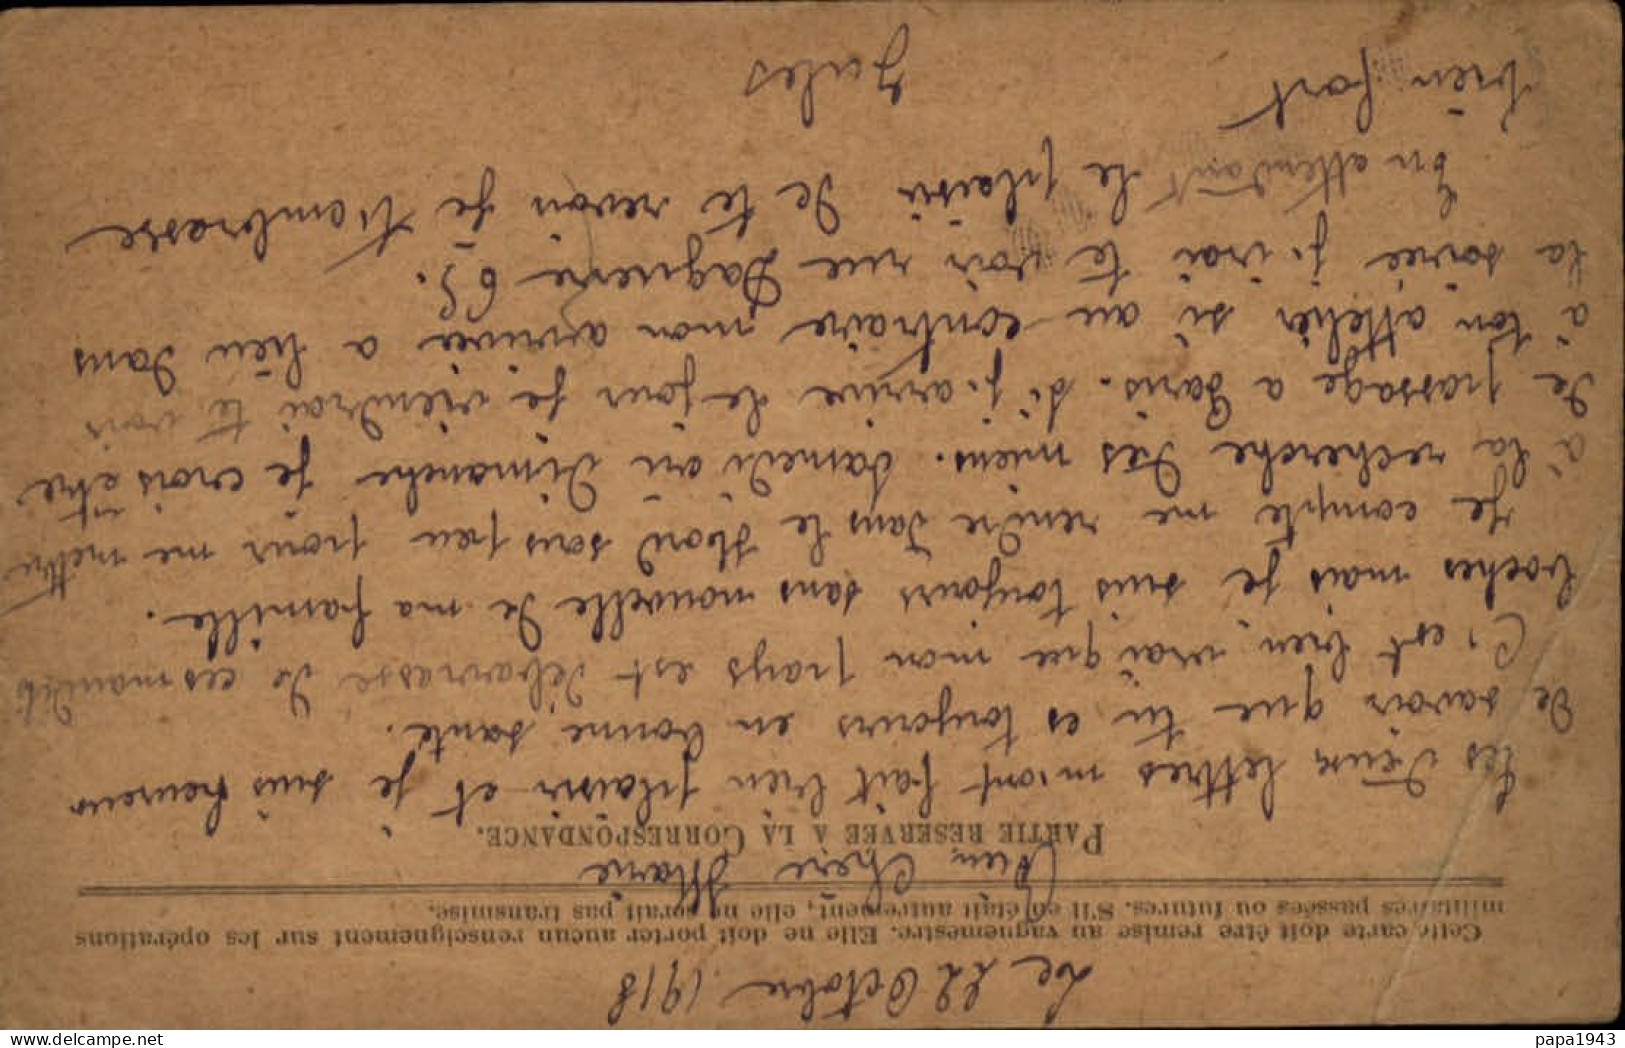 Le 22 Octobre 1918
Cette carte doit être remise au vaguemestre. Elle ne doit porter aucun renseignement sur les opérations
militaires passées ou futures. S'il en était autrement, elle ne serait pas transmise.
Bien Chère Marie
PARTIE RÉSERVÉE A LA CORRESPONDANCE.
Tes deux lettres m'ont fait bien plaisir et je suis heureux
de savoir que tu es toujours en bonne santé.
C'est bien vrai que mon pays est débarrassé de ces maudits
boches mais je suis toujours sans nouvelle de ma famille.
Je compte me rendre dans le Nord sous peu pour me mettre
à la recherche des miens. Samedi ou Dimanche je crois être
de passage a Paris. Si j'arrive le jour je viendrai te voir
à ton attelier si au contraire mon arrivée a lieu dans
la soirée j'irai te voir rue Daguerre 65.
En attendant le plaisir de te revoir je t'embrasse
bien fort
Jules
papa1943
delcampe.net